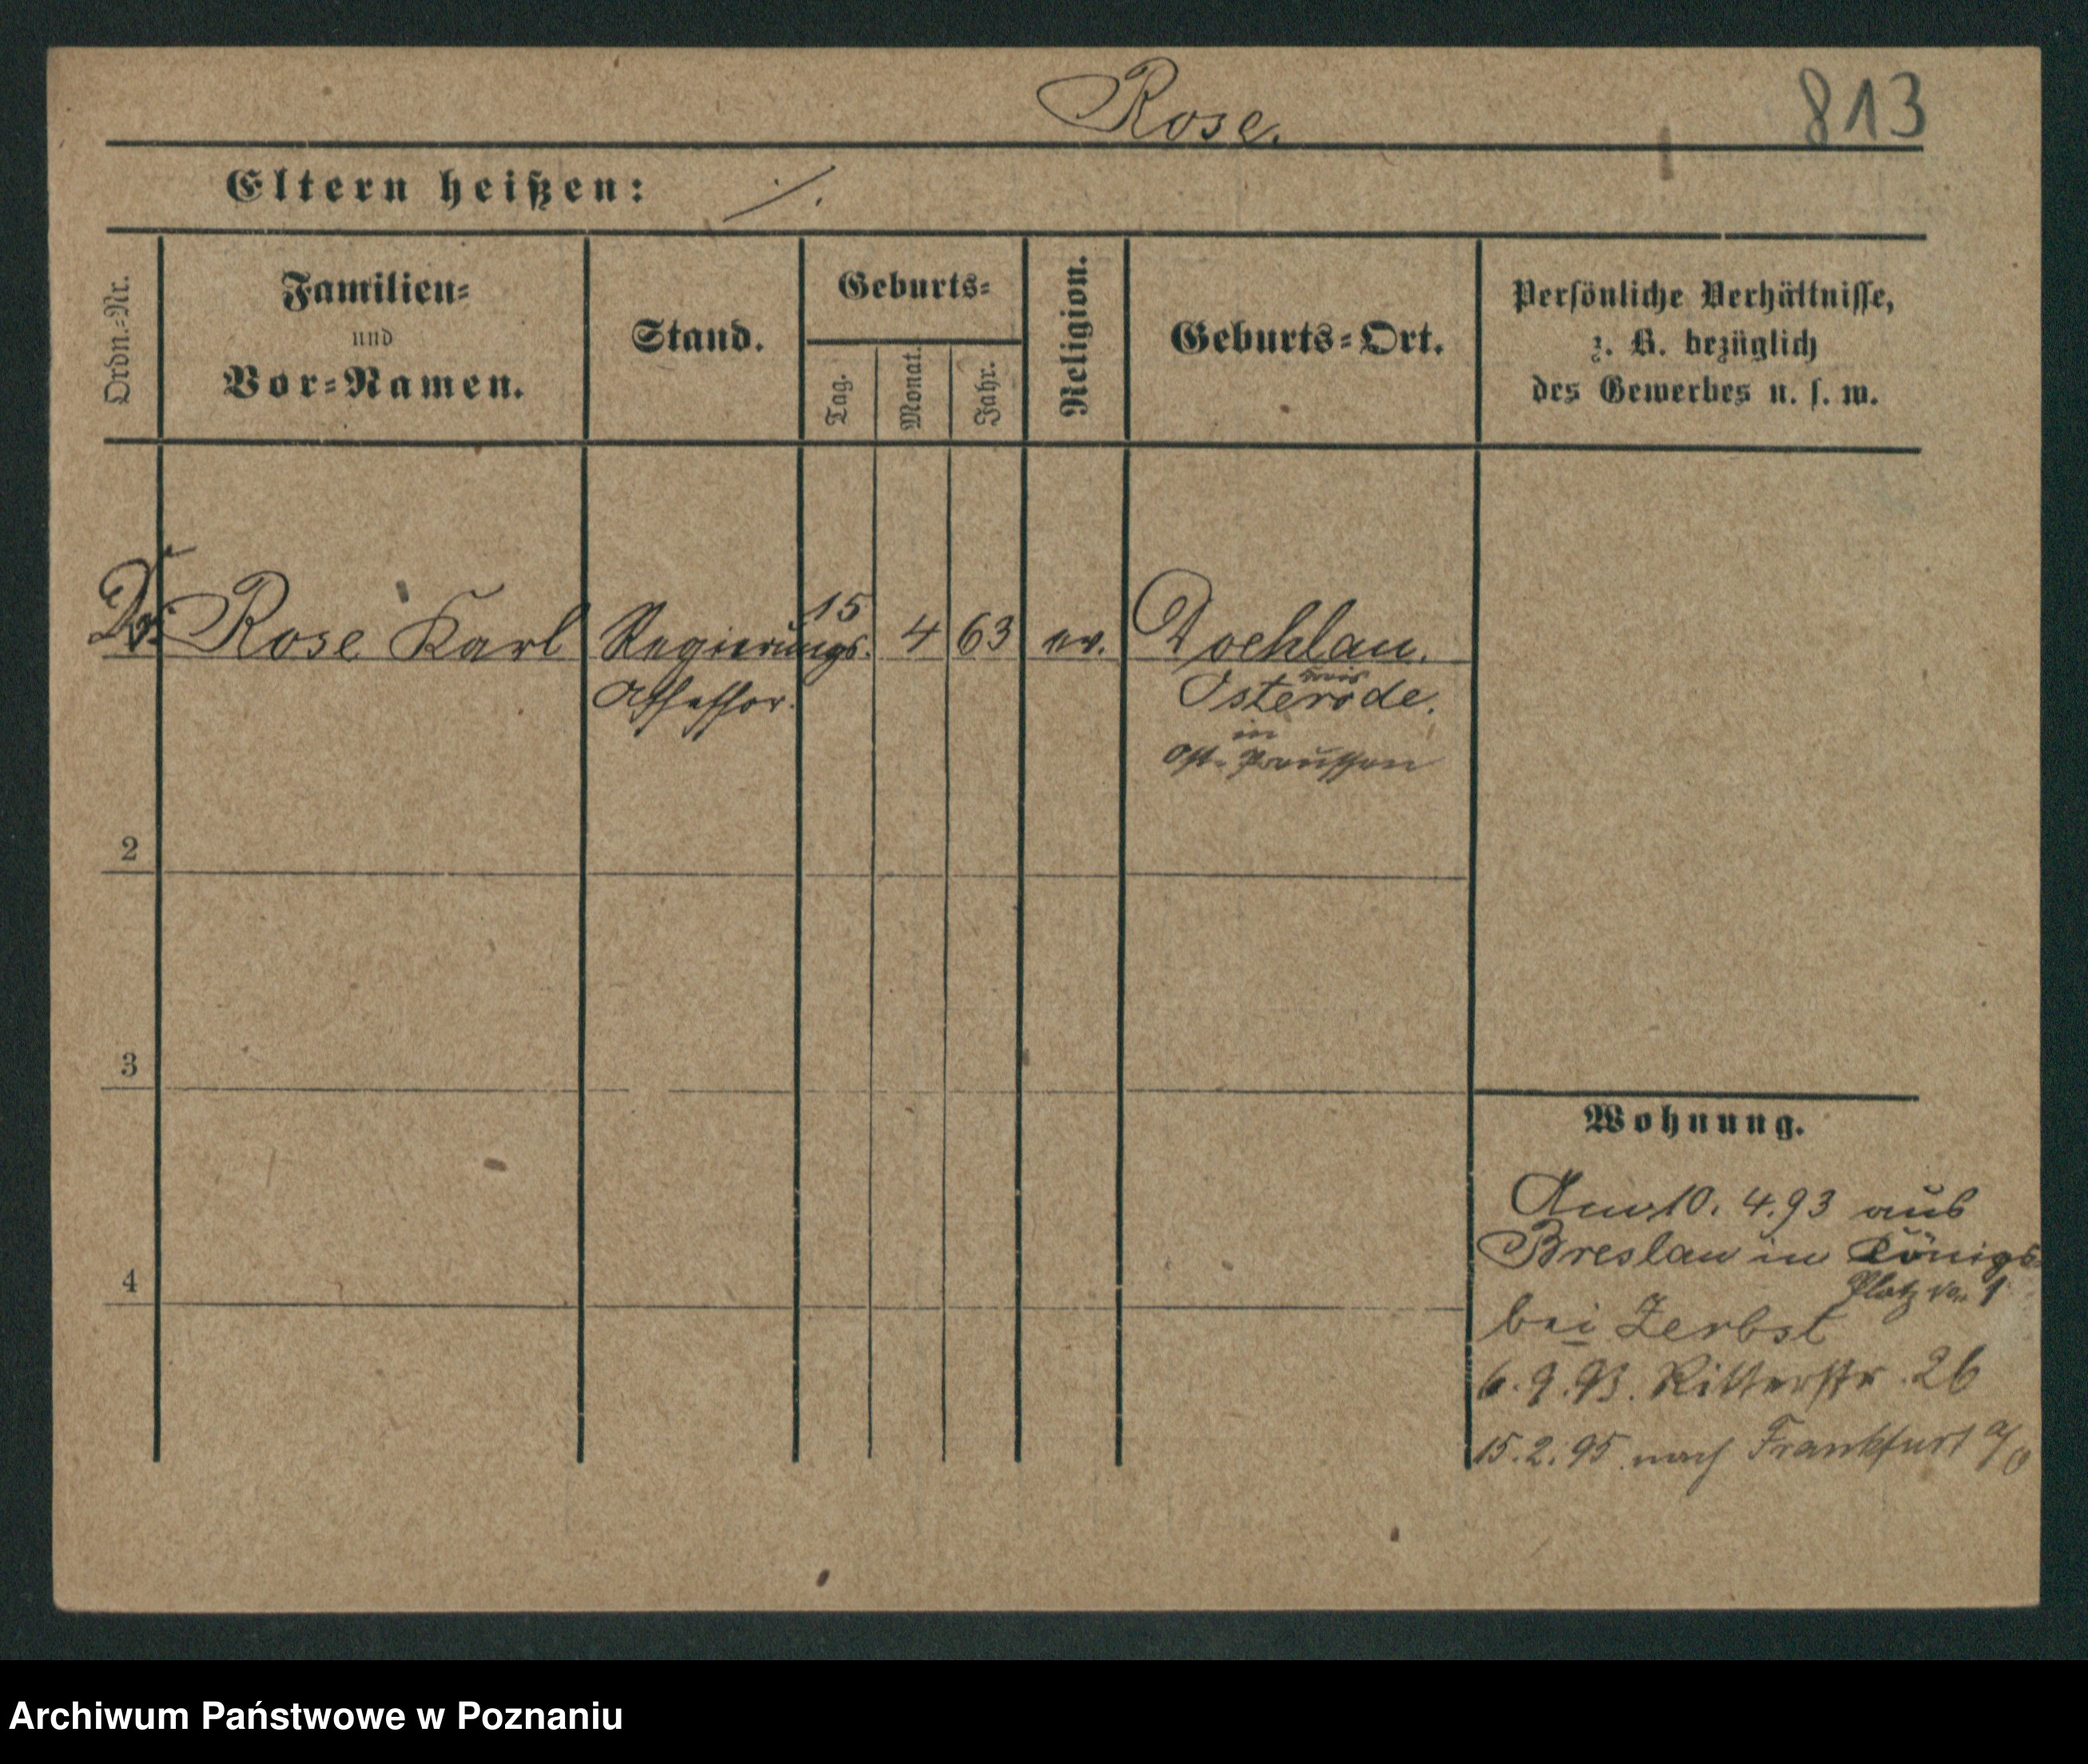 Rose.
813
Eltern heißen: ./.
Ordn.-Nr.
Familien-
und
Vor-Namen.
Stand.
Geburts-
Tag.
Monat.
Jahr.
Religion.
Geburts-Ort.
Persönliche Verhältnisse,
z. B. bezüglich
des Gewerbes u. s. w.
Dr. Rose Karl Regierungs- 15 4 63 ev. Doehlau.
Assessor.
Kreis
Osterode.
in
Ost-Preussen
2
3
4
Wohnung.
10. 4. 93 aus
Breslau in Königs-
Platz No 1
bei Zerbst
6. 9. 93. Ritterstr. 26
15. 2. 95. nach Frankfurt a/O
Archiwum Państwowe w Poznaniu